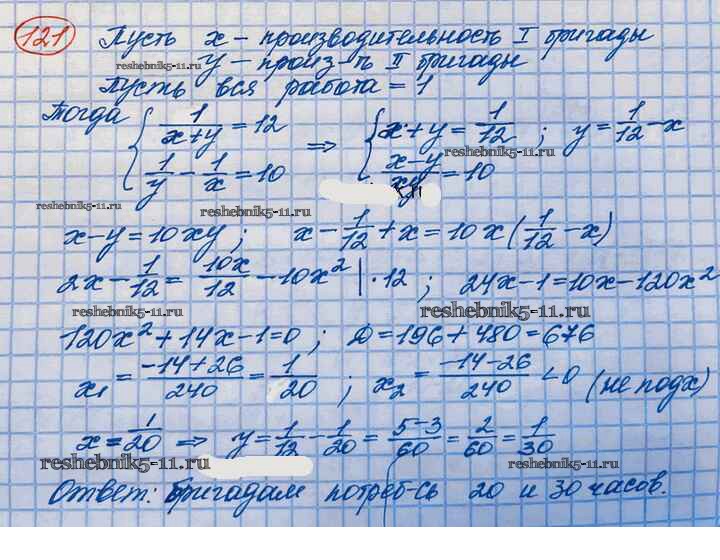 121 Пусть x – производительность I бригады
y – произ-ть II бригады
reshebnik5-11.ru
Пусть вся работа = 1
Тогда { 1/(x+y) = 12 ⇒ { x+y = 1/12 ; y = 1/12 - x
1/y - 1/x = 10 (x-y)/xy = 10
reshebnik5-11.ru
reshebnik5-11.ru reshebnik5-11.ru
x-y=10xy ; x - 1/12 + x = 10x(1/12 - x)
2x - 1/12 = 10x/12 - 10x² |·12 ; 24x-1=10x-120x²
reshebnik5-11.ru reshebnik5-11.ru
120x²+14x-1=0 ; D=196+480=676
x₁ = (-14+26)/240 = 1/20 ; x₂ = (-14-26)/240 < 0 (не подх)
x = 1/20 ⇒ y = 1/12 - 1/20 = (5-3)/60 = 2/60 = 1/30
reshebnik5-11.ru reshebnik5-11.ru
Ответ: бригадам потреб-сь 20 и 30 часов.